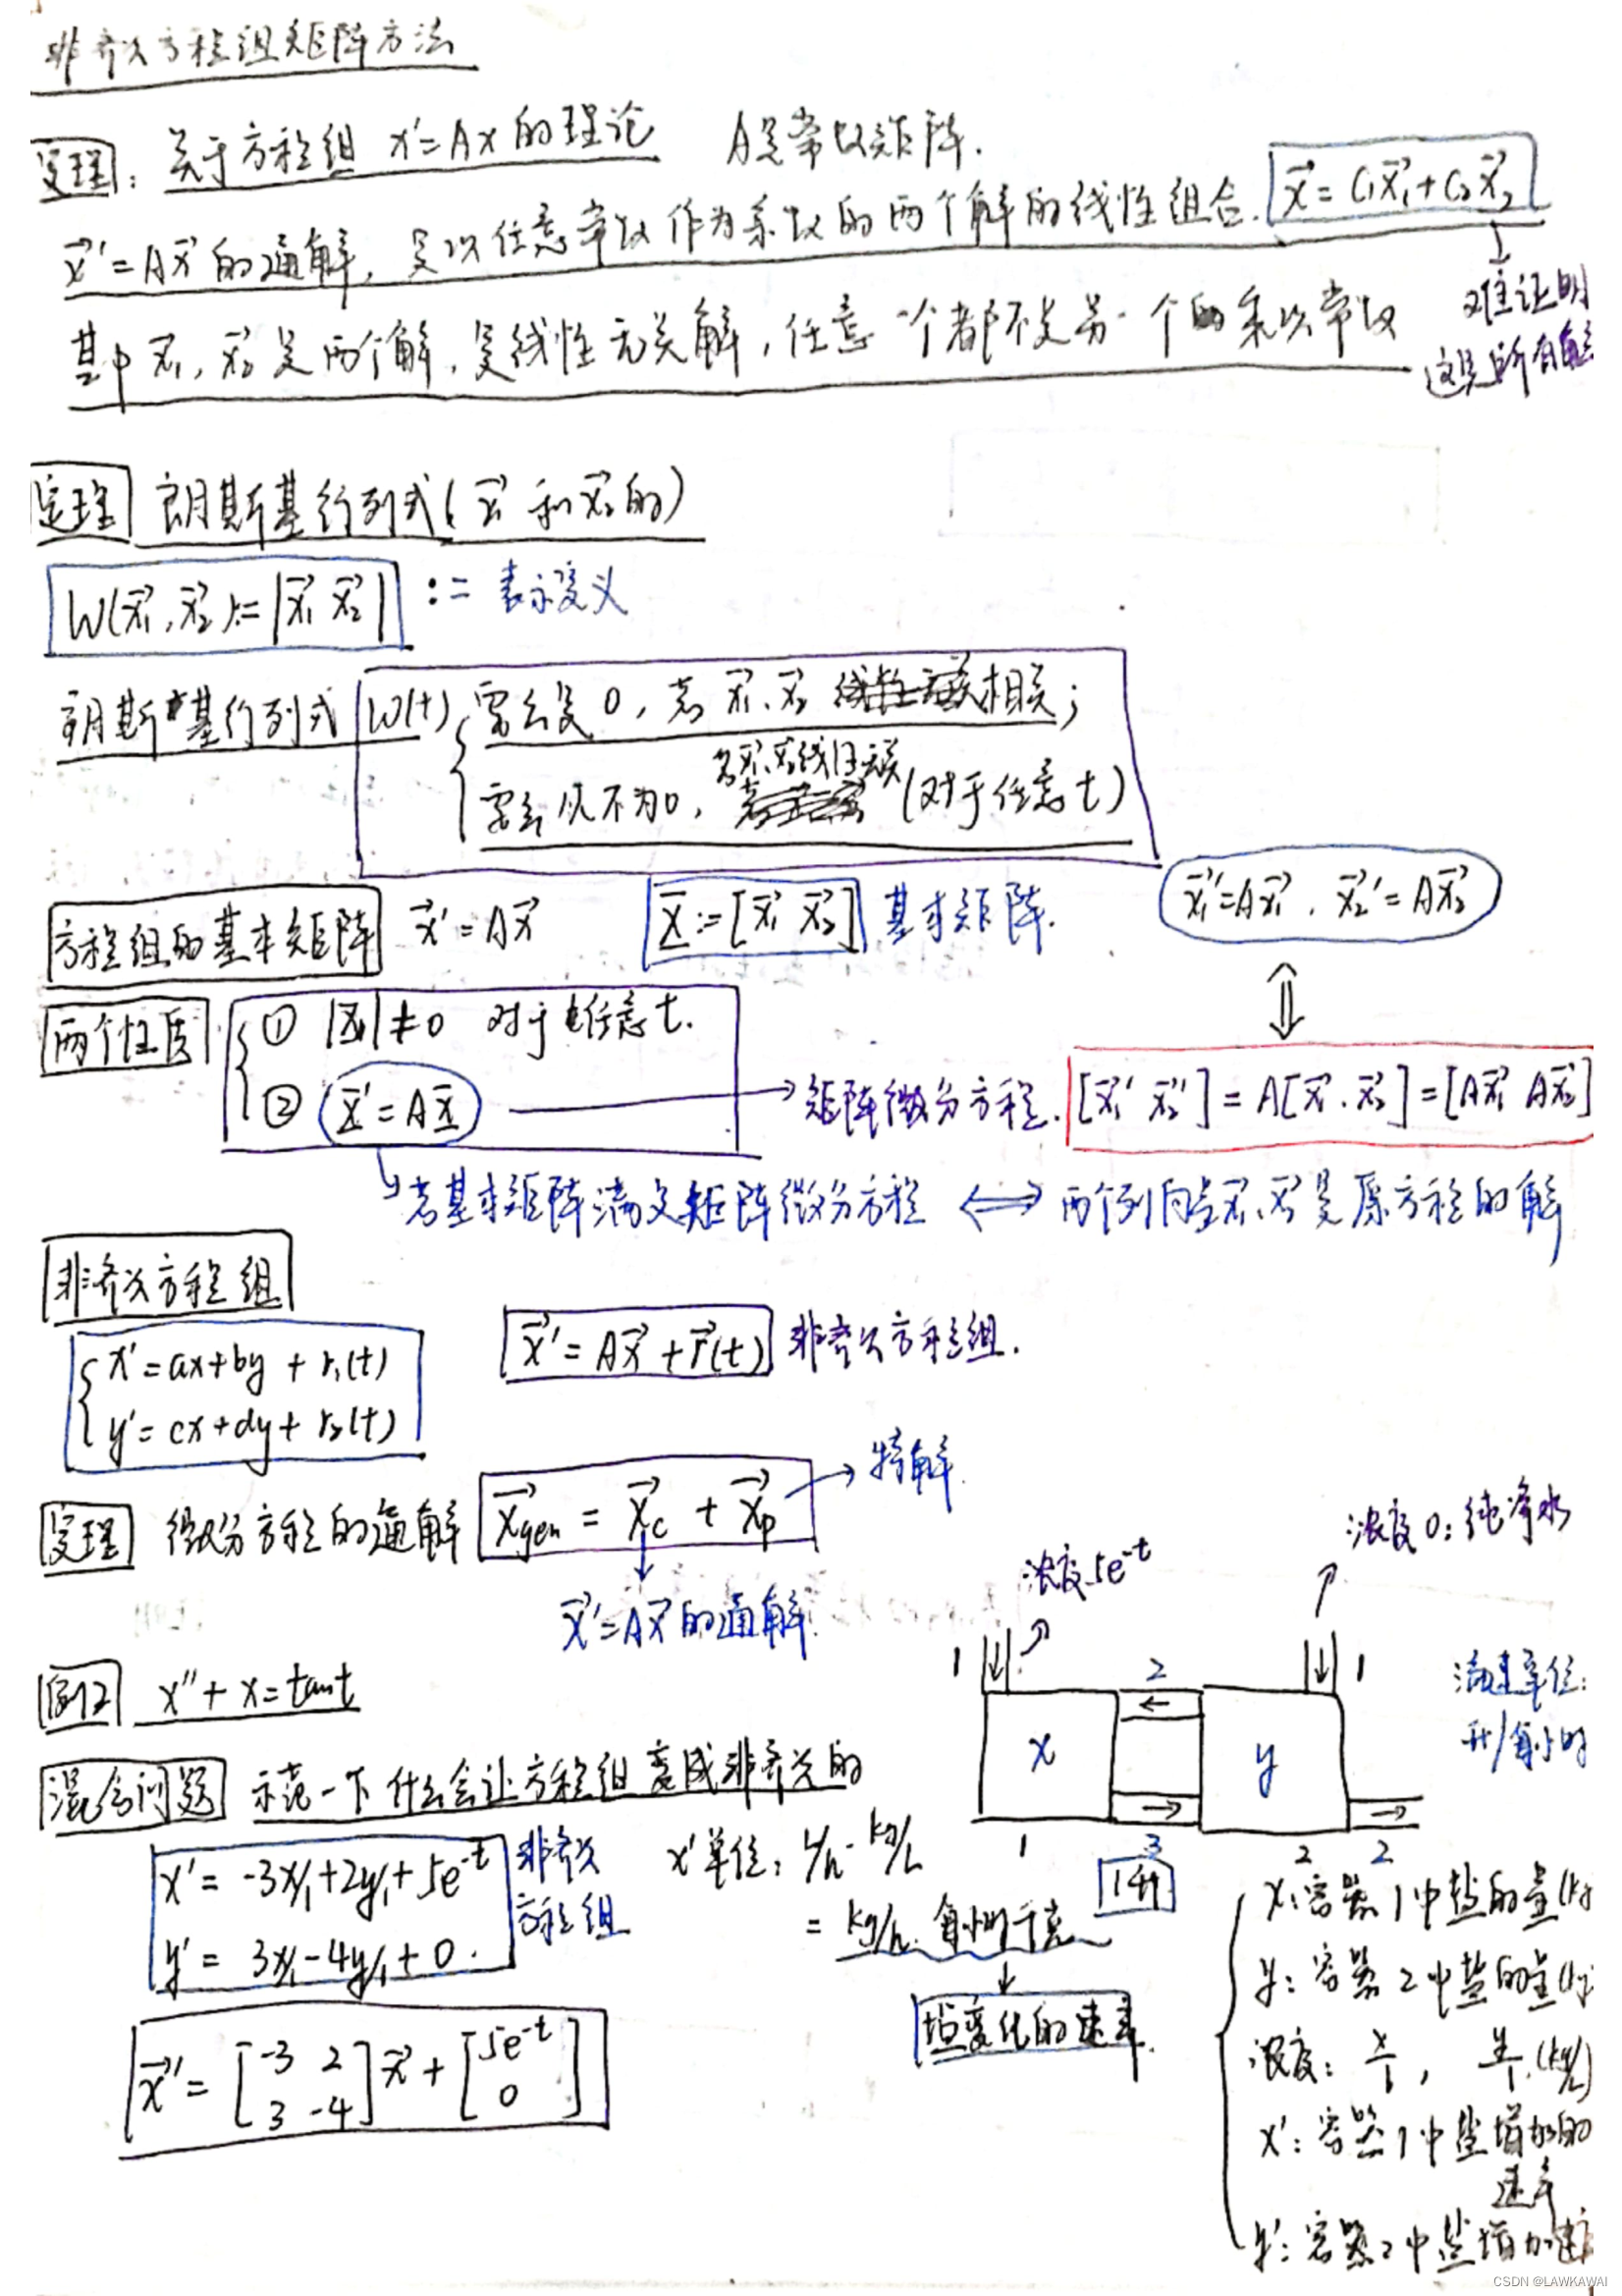 非齐次方程组矩阵方法
定理: 关于方程组 x'=Ax 的理论 A是常数矩阵.
x⃗'=Ax⃗ 的通解, 是以任意常数作为系数的两个解的线性组合. x⃗=C₁x⃗₁+C₂x⃗₂
难证明
这是所有解
其中 x⃗₁, x⃗₂ 是两个解, 是线性无关解, 任意一个都不是另一个的乘以常数
定理 朗斯基行列式(x⃗₁ 和 x⃗₂ 的)
W(x⃗₁, x⃗₂):=|x⃗₁ x⃗₂| := 表示定义
朗斯基行列式 W(t) 要么是 0, 若 x⃗₁、x⃗₂ 线性相关;
要么从不为0, 若x⃗₁、x⃗₂线性无关 (对于任意 t)
方程组的基本矩阵 x⃗'=Ax⃗ X:=[x⃗₁ x⃗₂] 基本矩阵.
x⃗₁'=Ax⃗₁, x⃗₂'=Ax⃗₂
⇕
两个性质 ① |X|≠0 对于任意 t.
② X'=AX → 矩阵微分方程. [x⃗₁' x⃗₂']=A[x⃗₁. x⃗₂]=[Ax⃗₁ Ax⃗₂]
若基本矩阵满足矩阵微分方程 ⟺ 两个列向量x⃗₁、x⃗₂是原方程的解
非齐次方程组
x'=ax+by+r₁(t)
y'=cx+dy+r₂(t)
x⃗'=Ax⃗+r⃗(t) 非齐次方程组.
定理 微分方程的通解 x⃗gen = x⃗c + x⃗p → 特解.
x⃗'=Ax⃗ 的通解.
浓度 5e⁻ᵗ
浓度 0: 纯净水
1 2 1
x y
1 3 2 2
1升
流速单位:
升/每小时
例 x''+x=tant
混合问题 示范一下什么会让方程组变成非齐次的
x'=-3x/1+2y/1+5e⁻ᵗ
y'=3x/1-4y/1+0.
非齐次
方程组
x'单位: L/h·kg/L
=kg/h. 每小时千克
盐变化的速率.
x⃗'=[-3 2; 3 -4]x⃗+[5e⁻ᵗ; 0]
x: 容器 1 中盐的量(kg
y: 容器 2 中盐的量(kg
浓度: x/1, y/1.(kg/L)
x': 容器1中盐增加的
速率
y': 容器2中盐增加速
CSDN @LAWKAWAI